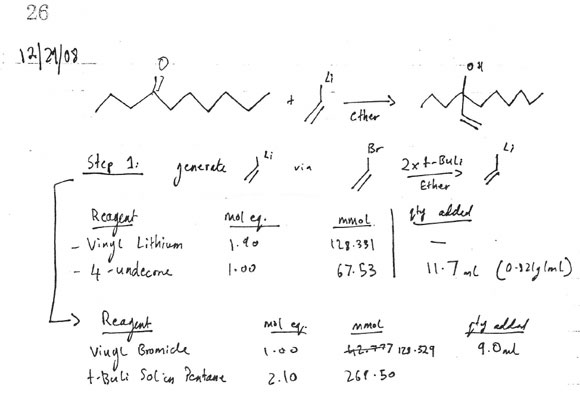 26
12/29/08
O Li OH
+ Ether
Step 1: generate Li via Br 2x t-BuLi Ether Li
Reagent mol eq. mmol qty added
- Vinyl Lithium 1.90 128.331 —
- 4-undecone 1.00 67.53 11.7 mL (0.821g/mL)
Reagent mol eq. mmol qty added
Vinyl Bromide 1.00 128.329 9.0ml
t-BuLi Sol in Pentane 2.10 269.50